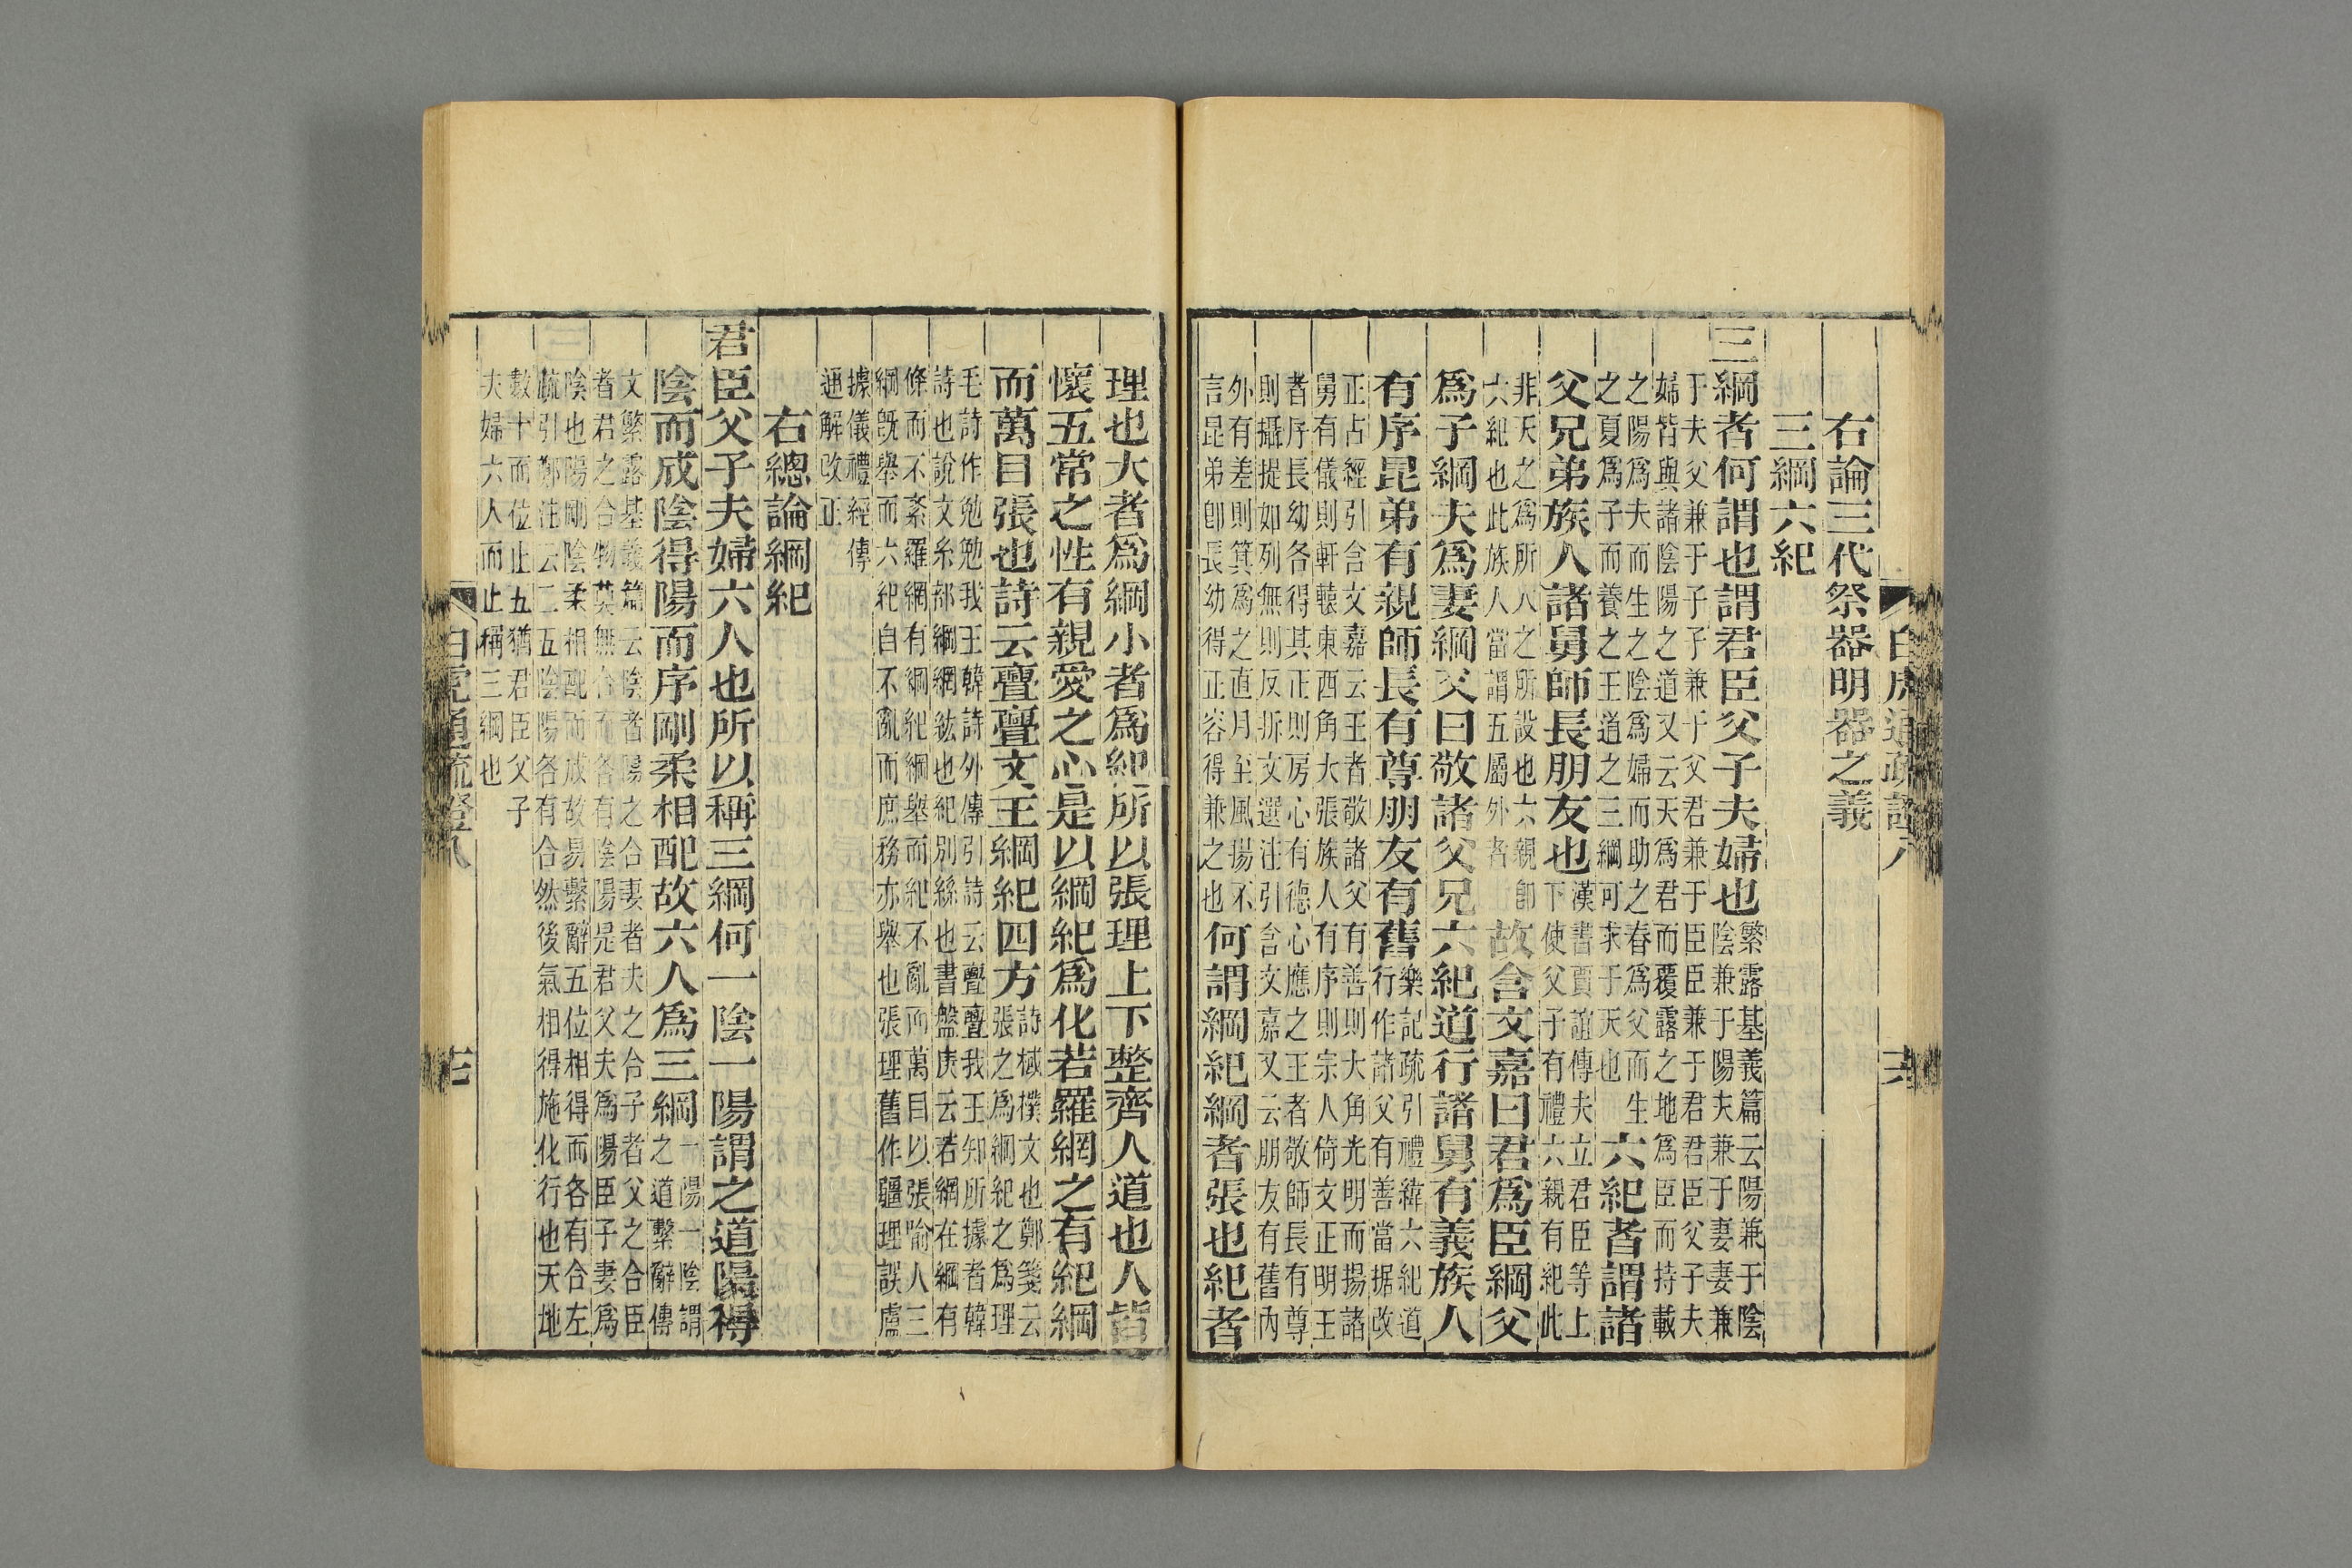 右論三代祭器明器之義
三綱六紀
三綱者何謂也謂君臣父子夫婦也繁露基義篇云陽兼于陰
陰兼于陽夫兼于妻妻兼
于夫父兼于子子兼于父君兼于臣臣兼于君君臣父子夫
婦皆與諸陰陽之道又云天爲君而覆露之地爲臣而持載
之陽爲夫而生之陰爲婦而助之春爲父而生
之夏爲子而養之王道之三綱可求于天也六紀者謂諸
父兄弟族人諸舅師長朋友也漢書賈誼傳夫立君臣等上
下使父子有禮六親有紀此
非天之爲所人之所設也六親卽
六紀也此族人當謂五屬外者故含文嘉曰君爲臣綱父
爲子綱夫爲妻綱又曰敬諸父兄六紀道行諸舅有義族人
有序昆弟有親師長有尊朋友有舊樂記疏引禮緯六紀道
行作諸父有善當据改
正占經引含文嘉云王者敬諸父有善則大角光明而揚諸
舅有儀則軒轅東西角大張族人有序則宗人倚文正明王
者序長幼各得其正則房心有德心應之王者敬師長有尊
則攝提如列無則反折文選注引含文嘉又云朋友有舊內
外有差則箕爲之直月至風揚不
言昆弟卽長幼得正容得兼之也何謂綱紀綱者張也紀者
理也大者爲綱小者爲紀所以張理上下整齊人道也人皆
懷五常之性有親愛之心是以綱紀爲化若羅網之有紀綱
而萬目張也詩云亹亹文王綱紀四方詩棫樸文也鄭箋云
張之爲綱紀之爲理
毛詩作勉勉我王韓詩外傳引詩云亹亹我王知所據者韓
詩也說文糸部綱網紘也紀別絲也書盤庚云若網在綱有
條而不紊羅網有綱紀綱舉而紀不亂而萬目以張喻人三
綱旣舉而六紀自不亂而庶務亦舉也張理舊作疆理誤盧
據儀禮經傳
通解改正
右總論綱紀
君臣父子夫婦六人也所以稱三綱何一陰一陽謂之道陽得
陰而成陰得陽而序剛柔相配故六人爲三綱一陽一陰謂
之道繫辭傳
文繁露基義篇云陰者陽之合妻者夫之合子者父之合臣
者君之合物莫無合而合各有陰陽是君父夫爲陽臣子妻爲
陰也陽剛陰柔相配而成故易繫辭五位相得而各有合左
疏引鄭注云二五陰陽各有合然後氣相得施化行也天地
數十而位止五猶君臣父子
夫婦六人而止稱三綱也
白虎通疏證八